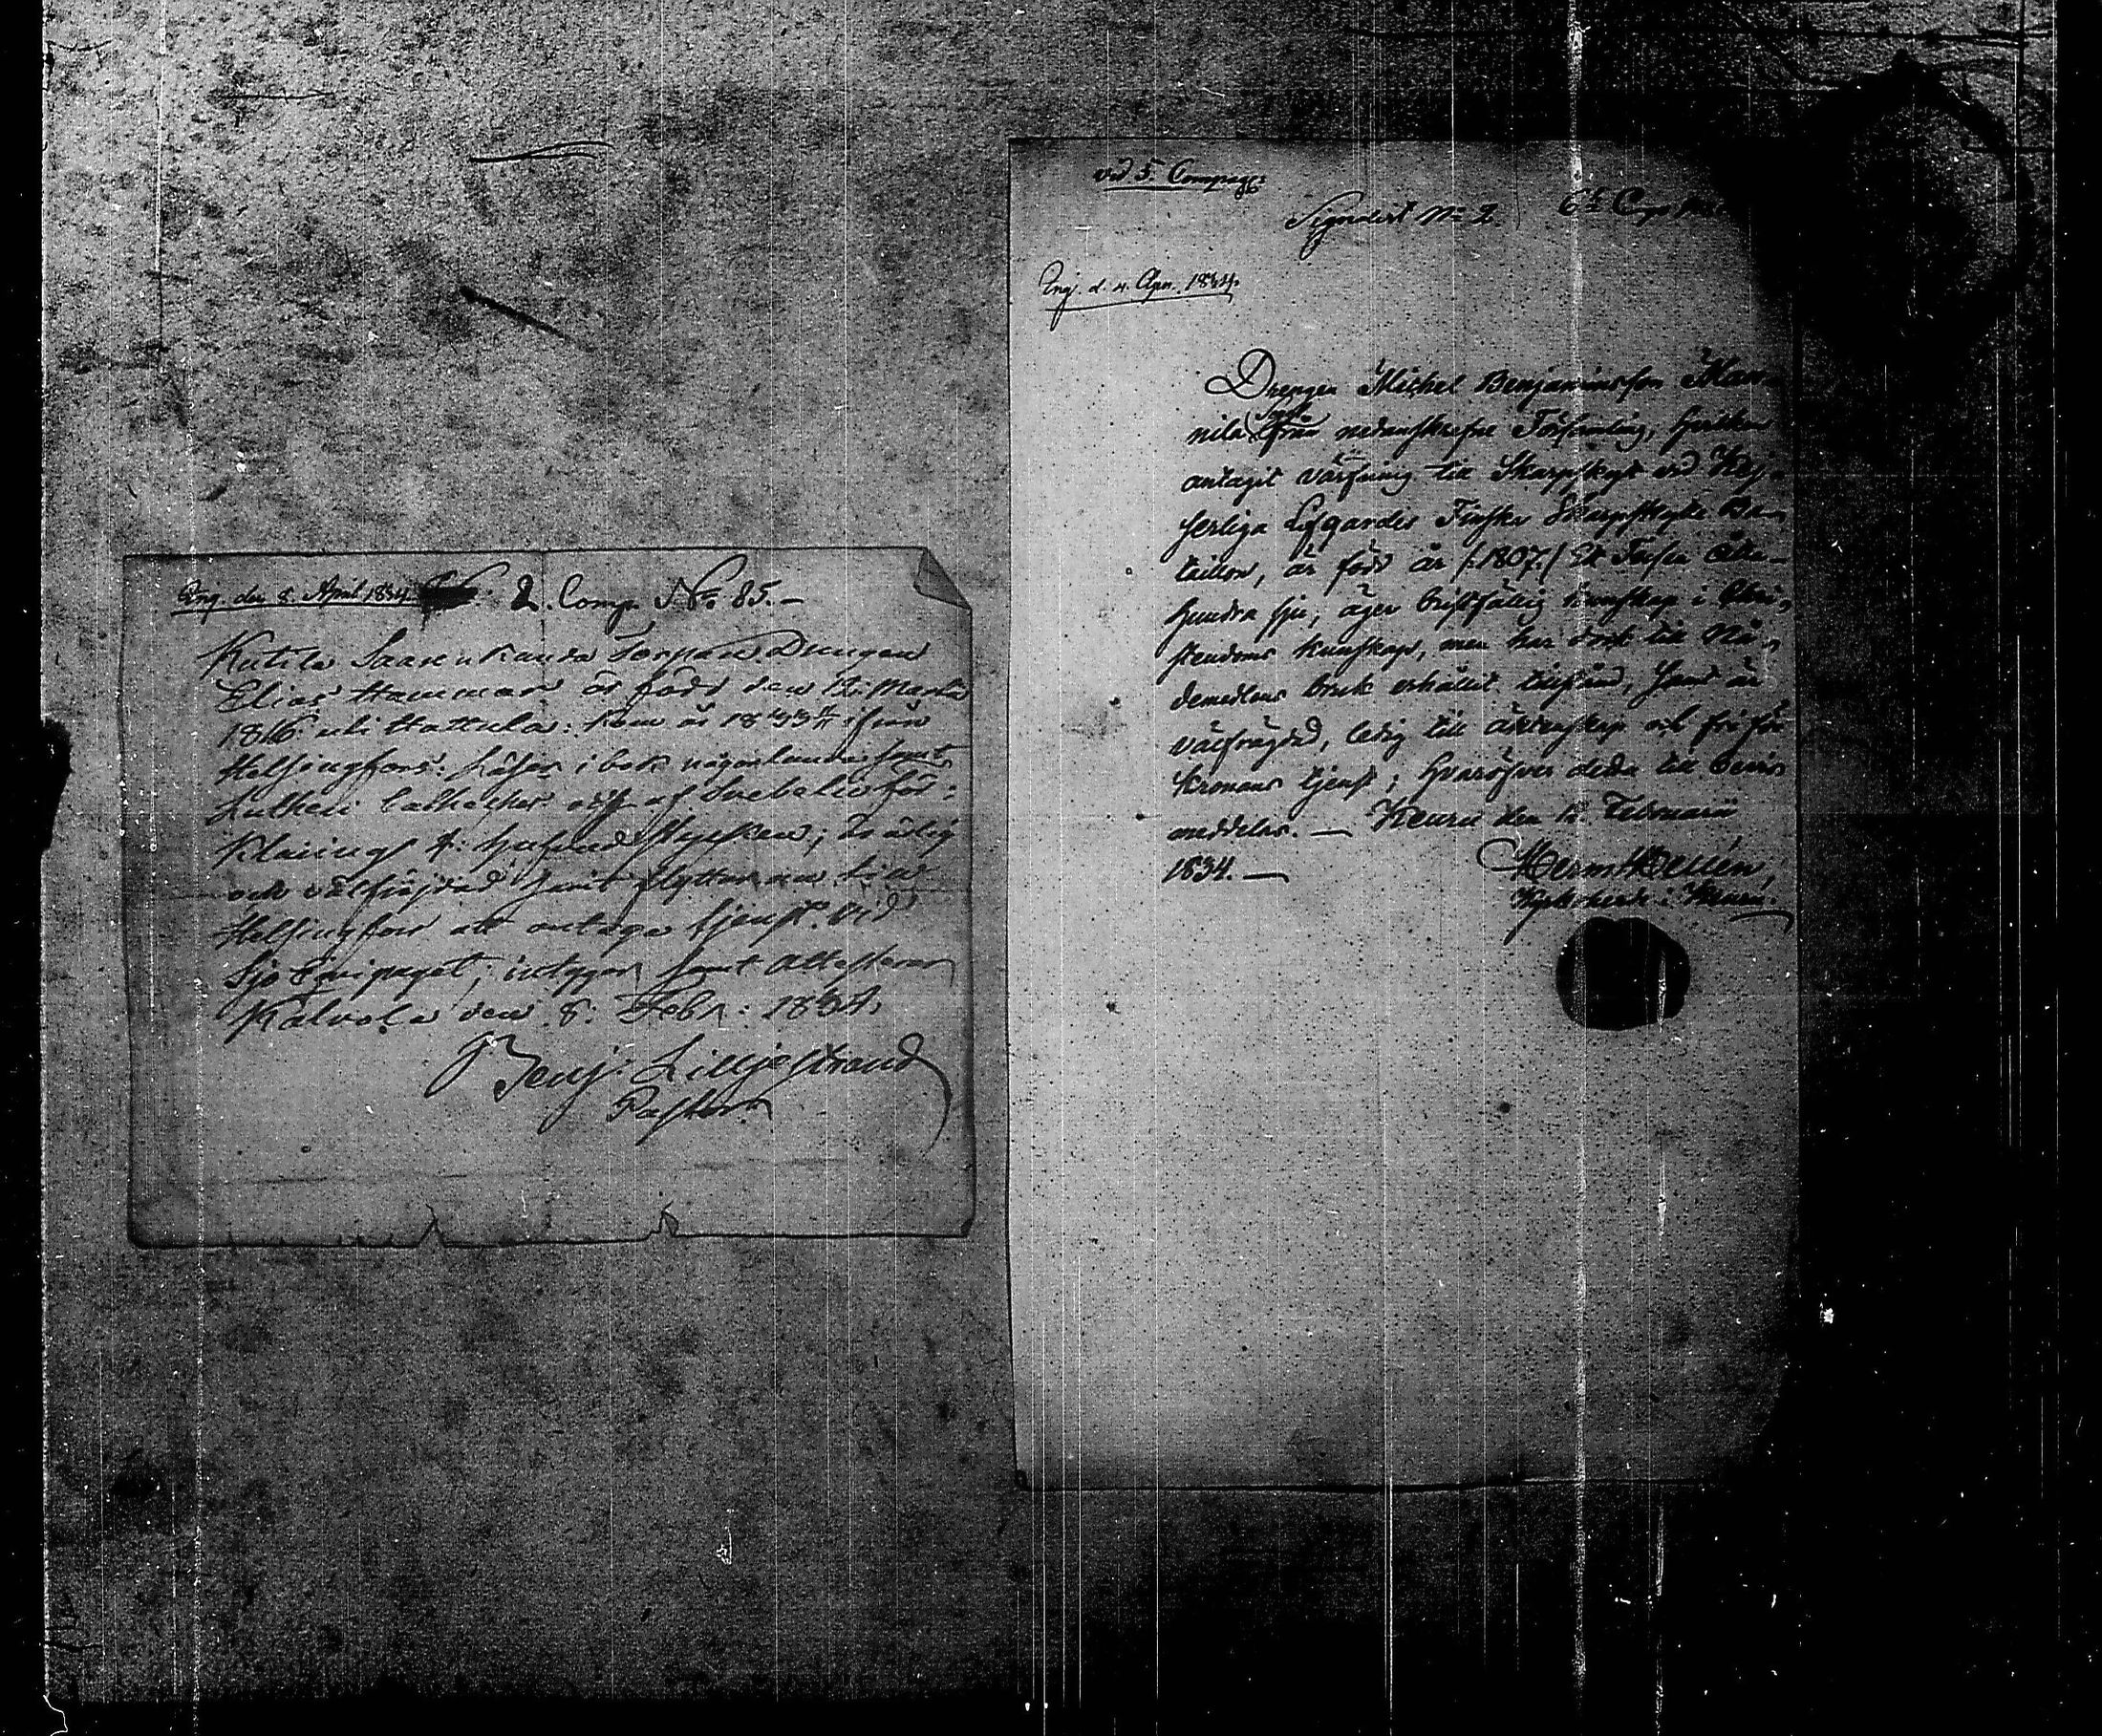 Ing. den 8. April 1834. 2. Comp. No. 85.–
Kutila Saarenkanda Torpare Drengen
Elias Hammar är född den 12. Martii
1816 uti Hattula: kom år 1833 ifrån
Helsingfors: Läser i bok någorlunda samt
Lutheri Catheches och af Svebelii för:
klaring
och välfrejdad samt flyttar nu till
Helsingfors att antaga tjenst vid
Sjö Equipaget; intygar samt attesterar
Kalvola den 8. Febr: 1834.
Benj. Lilljestrand
Pastor
vid 5. Compag:
No 2 6te Comp
Ing. d. 4. Apr. 1834.
Drengen Michel Benjaminsson Man-
nila från nedanskrefne Församling, hvilken
antagit värfning till Skarpskytt vid Kej-
serliga Lifgardes Finska Skarpskytte Ba-
taillon, är född år /:1807:/ Ett Tusen åtta-
hundra sju, äger bristfällig kunskap i Chri-
stendoms kunskap, men har dock till Nå-
demedlens bruk erhållit tillstånd, samt är
välfrägdad, ledig till äktenskap och fri för
Kronans tjenst; hvaröfver detta till bevis
meddelas. — Keuru den 12 Februarii
1834. —
Herm Hellén,
i Keuru.